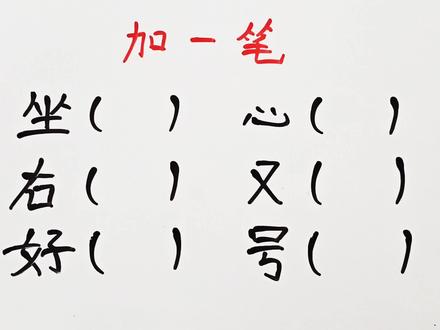 加一笔
坐(  ) 心(  )
右(  ) 又(  )
好(  ) 号(  )